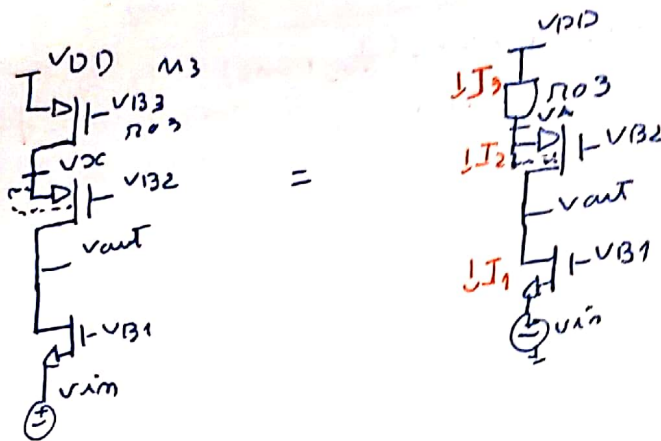 VDD M3
VB3
ro3
Vx
VB2
Vout
VB1
Vin
=
VDD
I3 ro3
Vx
I2 VB2
Vout
I1 VB1
Vin